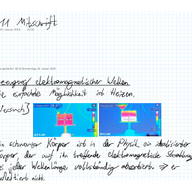 11 Mitschrift
zeugung elektromagnetischer Wellen
e einfachste Möglichkeit ist Heizen.
Versuch}
in schwarzer Körper ist in der Physik ein idealisierter
örper, der auf ihn treffende elektromagnetische Strahlung
ei jeder Wellenlänge vollständig absorbiert. => er
eflektiert nicht.